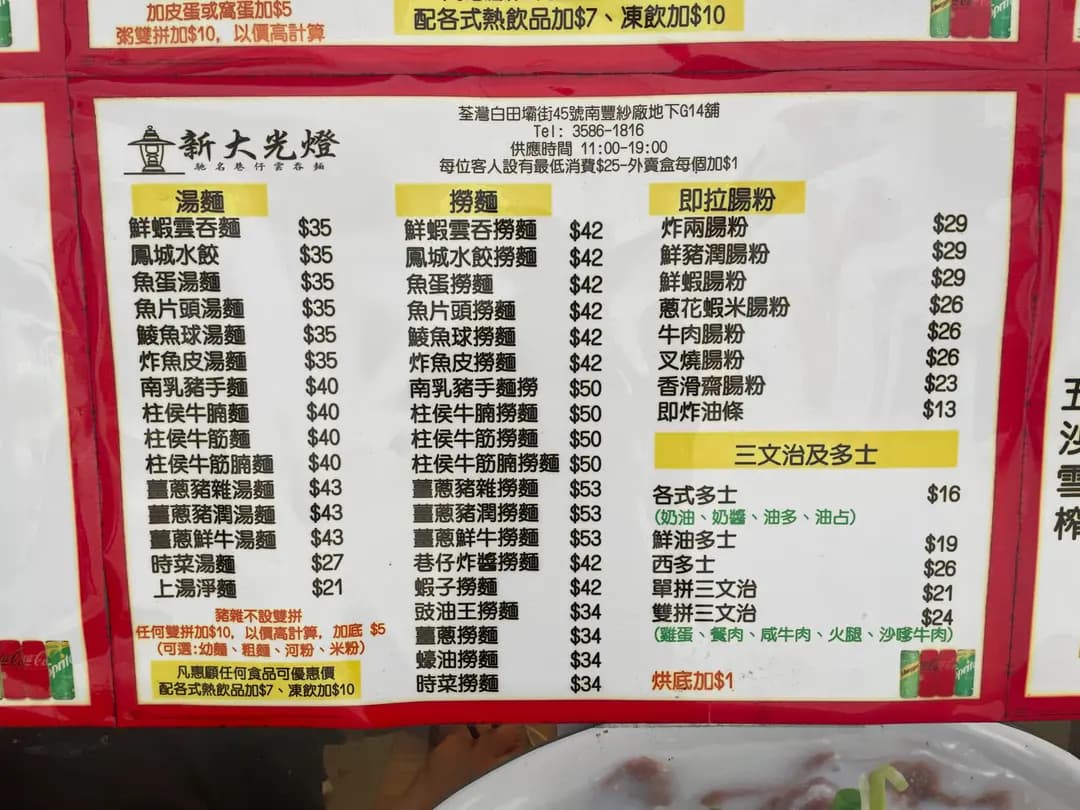 加皮蛋或窩蛋加$5
粥雙拼加$10，以價高計算
配各式熱飲品加$7、凍飲加$10
新大光燈
馳名巷仔雲吞麵
荃灣白田壩街45號南豐紗廠地下G14舖
Tel: 3586-1816
供應時間 11:00-19:00
每位客人設有最低消費$25-外賣盒每個加$1
湯麵
鮮蝦雲吞麵 $35
鳳城水餃 $35
魚蛋湯麵 $35
魚片頭湯麵 $35
鯪魚球湯麵 $35
炸魚皮湯麵 $35
南乳豬手麵 $40
柱侯牛腩麵 $40
柱侯牛筋麵 $40
柱侯牛筋腩麵 $40
薑蔥豬雜湯麵 $43
薑蔥豬潤湯麵 $43
薑蔥鮮牛湯麵 $43
時菜湯麵 $27
上湯淨麵 $21
豬雜不設雙拼
任何雙拼加$10，以價高計算，加底 $5
(可選:幼麵、粗麵、河粉、米粉)
凡惠顧任何食品可優惠價
配各式熱飲加$7、凍飲加$10
撈麵
鮮蝦雲吞撈麵 $42
鳳城水餃撈麵 $42
魚蛋撈麵 $42
魚片頭撈麵 $42
鯪魚球撈麵 $42
炸魚皮撈麵 $42
南乳豬手麵撈 $50
柱侯牛腩撈麵 $50
柱侯牛筋撈麵 $50
柱侯牛筋腩撈麵 $50
薑蔥豬雜撈麵 $53
薑蔥豬潤撈麵 $53
薑蔥鮮牛撈麵 $53
巷仔炸醬撈麵 $42
蝦子撈麵 $42
豉油王撈麵 $34
薑蔥撈麵 $34
蠔油撈麵 $34
時菜撈麵 $34
即拉腸粉
炸兩腸粉 $29
鮮豬潤腸粉 $29
鮮蝦腸粉 $29
蔥花蝦米腸粉 $26
牛肉腸粉 $26
叉燒腸粉 $26
香滑齋腸粉 $23
即炸油條 $13
三文治及多士
各式多士 $16
(奶油、奶醬、油多、油占)
鮮油多士 $19
西多士 $26
單拼三文治 $21
雙拼三文治 $24
(雞蛋、餐肉、咸牛肉、火腿、沙嗲牛肉)
烘底加$1
五
沙
雪
榨